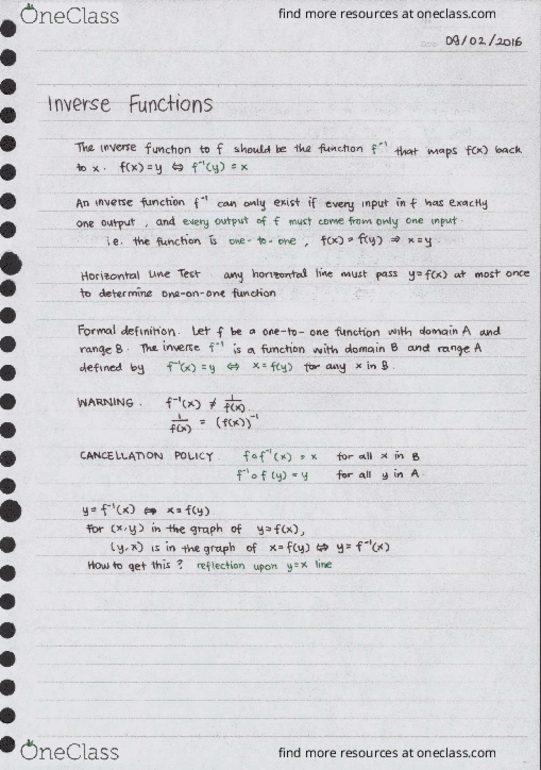 OneClass find more resources at oneclass.com
09/02/2016
Inverse Functions
The inverse function to f should be the function f⁻¹ that maps f(x) back
to x. f(x)=y ⇔ f⁻¹(y) = x
An inverse function f⁻¹ can only exist if every input in f has exactly
one output, and every output of f must come from only one input.
i.e. the function is one-to-one, f(x) = f(y) ⇒ x=y.
Horizontal Line Test. any horizontal line must pass y=f(x) at most once
to determine one-on-one function
Formal definition. Let f be a one-to-one function with domain A and
range B. The inverse f⁻¹ is a function with domain B and range A
defined by f⁻¹(x) = y ⇔ x = f(y) for any x in B.
WARNING. f⁻¹(x) ≠ 1/f(x).
1/f(x) = (f(x))⁻¹
CANCELLATION POLICY. f∘f⁻¹(x) = x for all x in B
f⁻¹∘f(y) = y for all y in A.
y = f⁻¹(x) ⇔ x = f(y)
For (x,y) in the graph of y=f(x),
(y,x) is in the graph of x=f(y) ⇔ y=f⁻¹(x)
How to get this? reflection upon y=x line
OneClass find more resources at oneclass.com